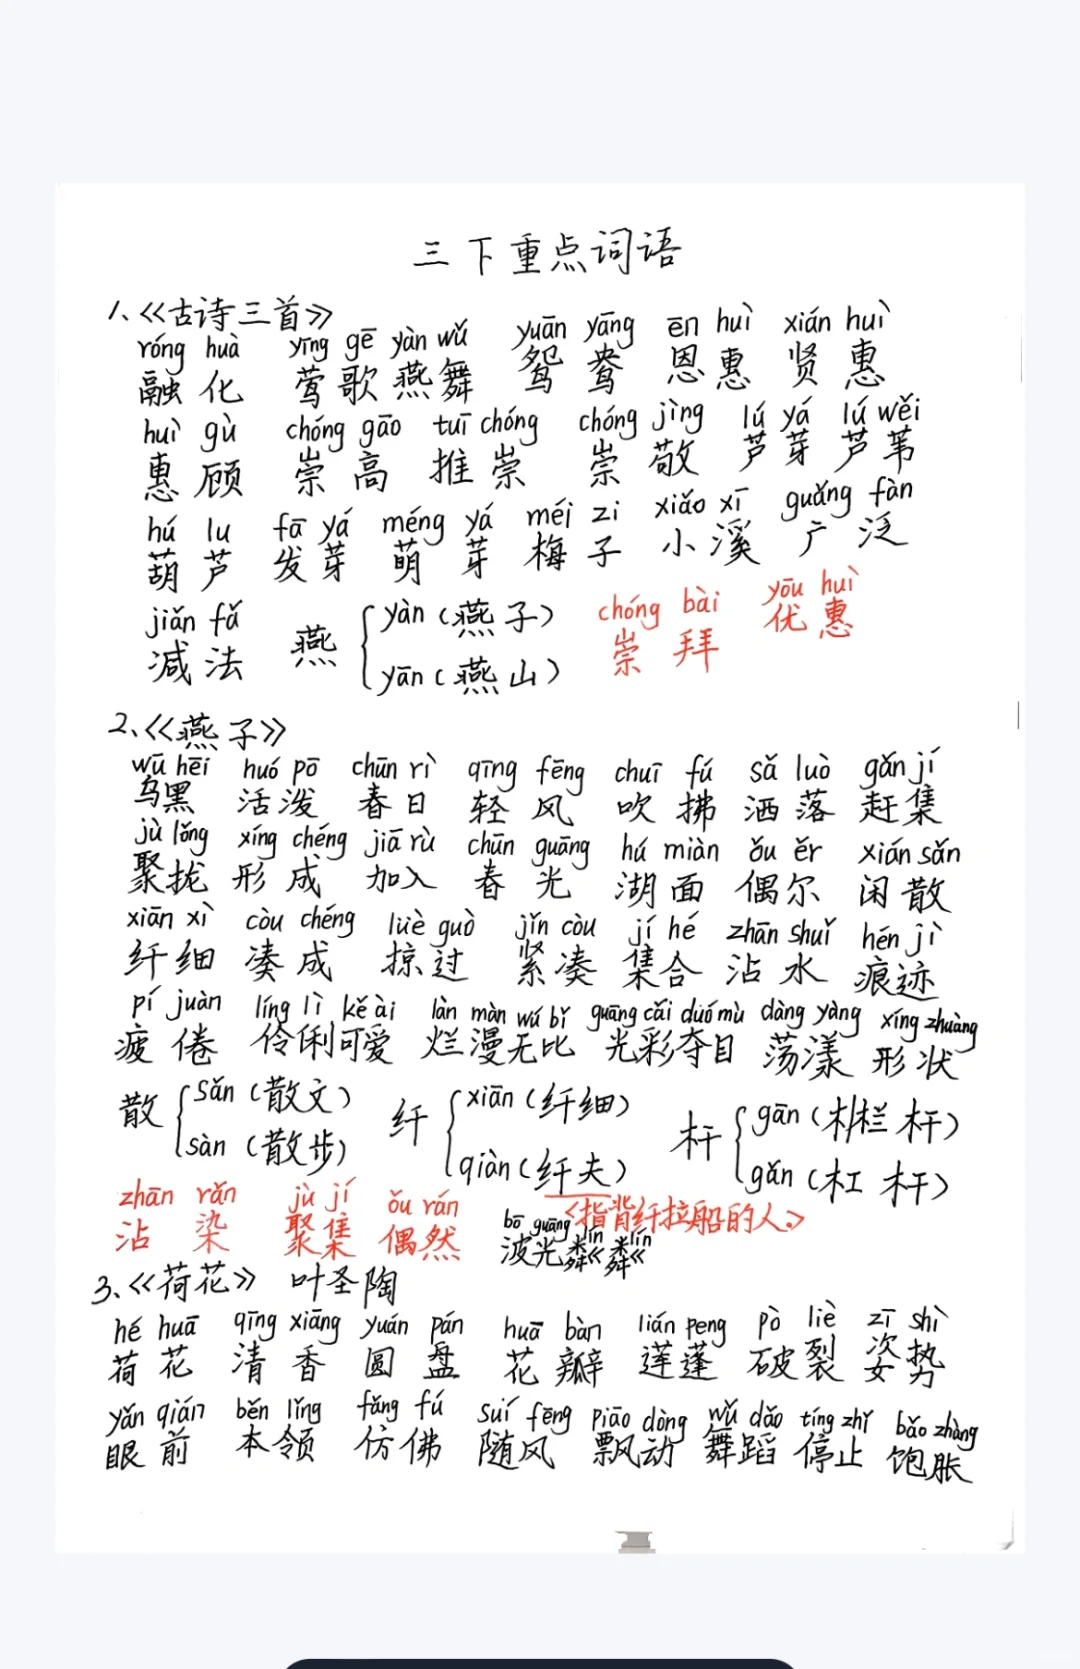 三下重点词语
1、《古诗三首》
róng huà yīng gē yàn wǔ yuān yāng ēn huì xián huì
融化 莺歌燕舞 鸳鸯 恩惠 贤惠
huì gù chóng gāo tuī chóng chóng jìng lú yá lú wěi
惠顾 崇高 推崇 崇敬 芦芽 芦苇
hú lu fā yá méng yá méi zi xiǎo xī guǎng fàn
葫芦 发芽 萌芽 梅子 小溪 广泛
jiǎn fǎ yàn (燕子) chóng bài yōu huì
减法 燕 崇拜 优惠
yān (燕山)
2、《燕子》
wū hēi huó pō chūn rì qīng fēng chuī fú sǎ luò gǎn jí
乌黑 活泼 春日 轻风 吹拂 洒落 赶集
jù lǒng xíng chéng jiā rù chūn guāng hú miàn ǒu ěr xián sǎn
聚拢 形成 加入 春光 湖面 偶尔 闲散
xiān xì còu chéng lüè guò jǐn còu jí hé zhān shuǐ hén jì
纤细 凑成 掠过 紧凑 集合 沾水 痕迹
pí juàn líng lì kě ài làn màn wú bǐ guāng cǎi duó mù dàng yàng xíng zhuàng
疲倦 伶俐可爱 烂漫无比 光彩夺目 荡漾 形状
sǎn (散文) xiān (纤细) gān (栏杆)
散 纤 杆
sàn (散步) qiàn (纤夫) gǎn (杠杆)
zhān rǎn jù jí ǒu rán <指背纤拉船的人。>
沾染 聚集 偶然
bō guāng lín lín
波光粼粼
3、《荷花》 叶圣陶
hé huā qīng xiāng yuán pán huā bàn lián peng pò liè zī shì
荷花 清香 圆盘 花瓣 莲蓬 破裂 姿势
yǎn qián běn lǐng fǎng fú suí fēng piāo dòng wǔ dǎo tíng zhǐ bǎo zhàng
眼前 本领 仿佛 随风 飘动 舞蹈 停止 饱胀